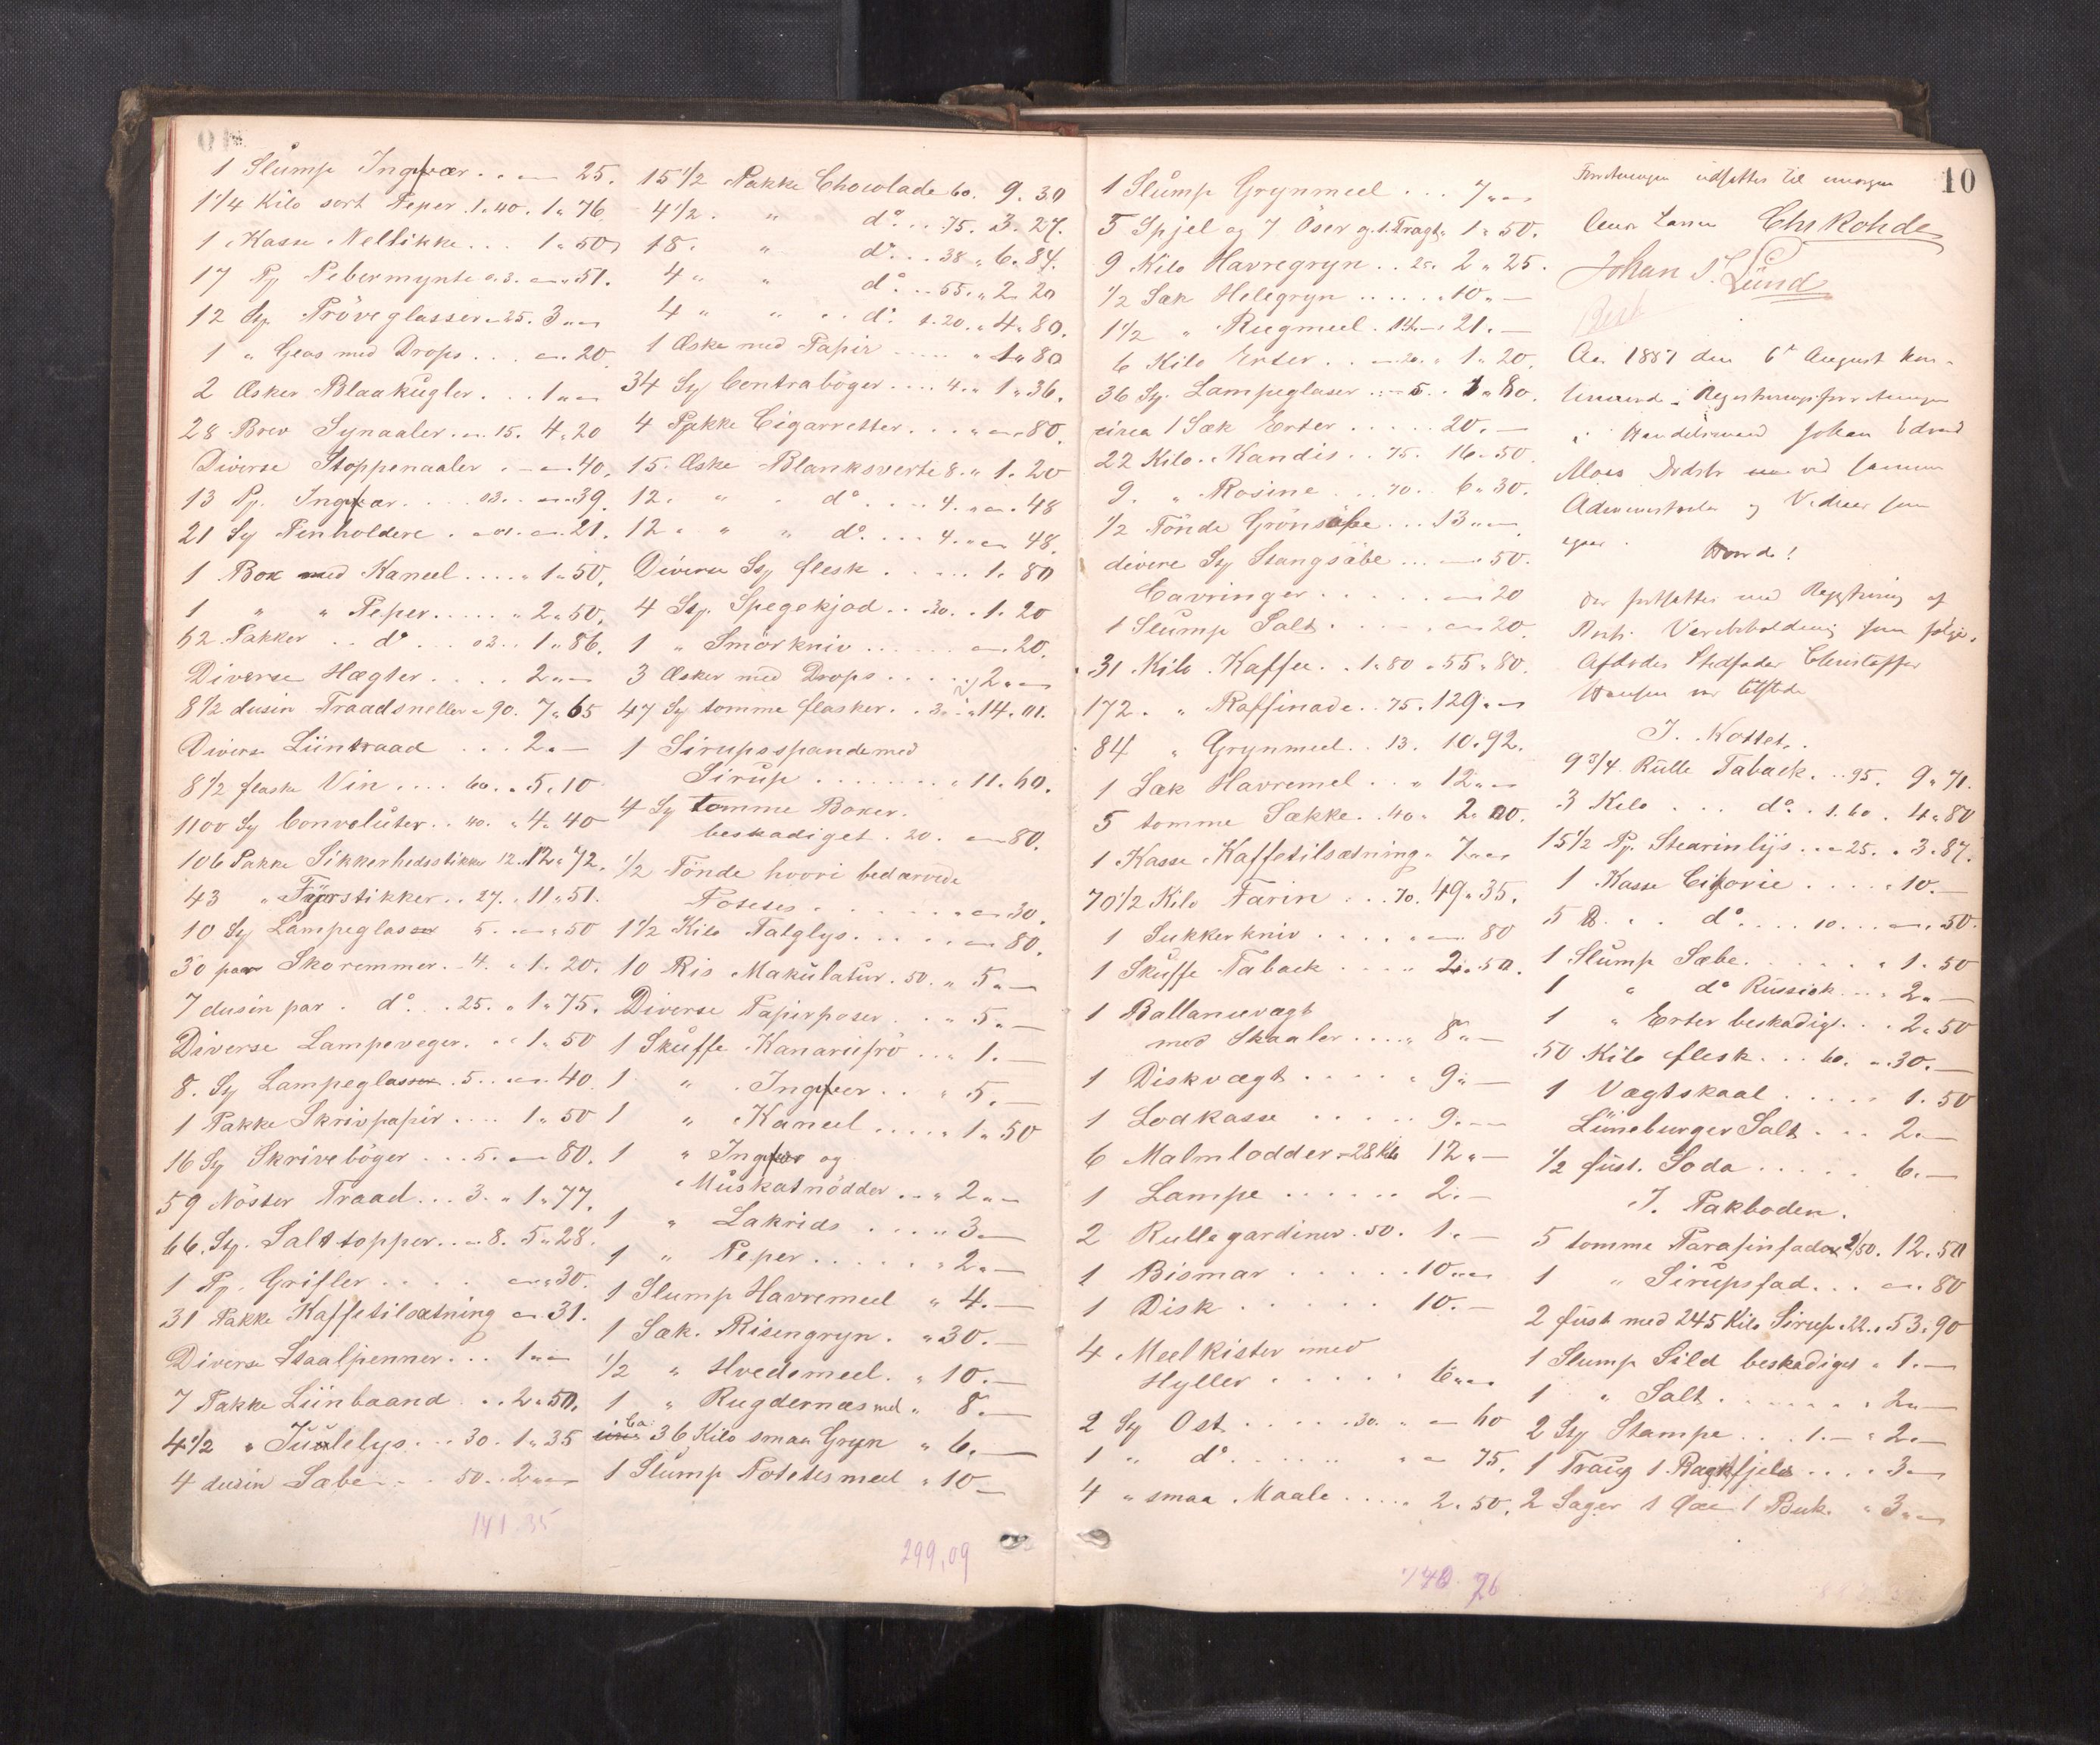 1 Slump Ingefær . . „ — 25.
1 1/4 Kilo sort Peper . 1.40. 1 „ 76
1 Kasse Nellikke . . . 1 „ 50
17 Pj Pebermynte 0.3. — „ 51.
12 Sty. Pröveglasser „ 25. 3 „ —
1 „ Glas med Drops . . . — „ 20
2 Æsker Blaakugler . . . 1 „ —
28 Brev Synaaler . „ 15. 4 „ 20
Diverse Stoppenaaler . — „ 40.
13 Pj. Ingefær . . . 03. . — „ 39.
21 Sty Penholdere . „ 01. — „ 21.
1 Box med Kaneel . . . . „ 1 „ 50.
1 „ „ Peper . . . . . „ 2 „ 50.
62 Pakker . . do . . . 03. . 1 „ 86.
Diverse Hægter . . . . 2 „ —
8 1/2 dusin Traadsneller „ 90. 7 „ 65
Diverse Liintraad . . . 2 „ —
8 1/2 flaske Vin . . . . 60. „ 5. 10
1100 Sty Convoluter . . 40. „ 4 „ 40
106 Pakke Sikkerhedsstikker 12. 12 „ 72.
43 „ Fyrstikker . . 27. „ 11 „ 51.
10 Sty Lampeglas 5. . — „ 50
30 par Skoremmer . . 4. „ 1. 20.
7 dusin par . do . . . 25. „ 1 „ 75.
Diverse Lampeveger . . „ 1 „ 50
8. Sty Lampeglas . 5. . — „ 40.
1 Pakke Skrivpapir . . . . 1 „ 50
16 Sty Skriveböger . . . 5. — 80.
59 Nöster Traad . . . 3. „ 1 „ 77.
66. Sty. Salttopper . . „ 8. 5 „ 28.
1 Pj. Grifler . . . . — „ 30.
31 Pakke Kaffetilsætning — „ 31.
Diverse Staalpenner . . . 1 „ —
7 Pakke Liinbaand . . 2 „ 50.
4 1/2 „ Julelys . . . 30. 1 „ 35
4 dusin Sæbe . . . 50. . 2 „ —
141.35
15 1/2 Pakke Chocolade 60. 9. 30
4 1/2 . „ do . . 75. 3. 27.
18. „ do . . . 38 „ 6. 84.
4 „ „ do . . . 55. „ 2. 20
4 „ „ . . do 1.20. „ 4. 80.
1 Æske med Papir . . . . . „ 1 „ 80
34 Sty Contraböger . . . . 4. „ 1 „ 36.
4 Pakke Cigarretter . . . „ — 80.
15. Æske Blanksverte 8. „ 1. 20
12. „ . do . . . . 4. „ — . 48
12 . „ „ do . . . 4. „ — 48.
Diverse Sty flesk . . . . . 1. 80
4 Sty. Spegekjød . . . 30. . 1. 20
1 „ Smörkniv . . . . . — „ 20.
3 Æsker med Drops . . . . . 2 „ —
47 Sty tomme flasker . . 3. „ 14. 01.
1 Sirupsspande med
Sirup . . . . . . . „ 11. 60.
4 Sty tomme Boxer.
beskadiget . 20. — 80.
1/2 Tönde hvori bedærvede
Poteter . . . . . . . — 30.
1 1/2 Kilo Talglys . . . . . — 80.
10 Ris Makulatur . 50. „ 5 „ —
Diverse Papirposer . . „ 5. —
1 Skuffe Kanariifrö . . „ 1. —
1 „ . Ingefær . . „ 5. —
1 „ Kaneel . . . . „ 1 „ 50
1 „ Ingefær og
Muskatnödder . . „ 2 „ —
1 „ Lakrids . . . . „ 3 —
1 „ Peper . . . . . „ 2 „ —
1 Slump Havremeel „ 4. —
1 Sæk . Risengryn . „ 30. —
1/2 „ Hvedemeel . „ 10. —
1 „ Rugdernæs mel „ 8. —
Ca. 36 Kilo smaa Gryn „ 6. —
1 Slump Potetesmeel „ 10 —
299,09
10
1 Slump Grynmeel . . . 7 „ —
5 Spjel og 7 Öser og 1. Tragt „ 1 „ 50.
9 Kilo Havregryn . . 25. 2 „ 25.
1/2 Sæk Helegryn . . . . . „ 10 „ —
1 1/2 „ Rugmeel . 14 „ — „ 21. —
6 Kilo Erter . . — 20. „ 1 „ 20.
36 Sty. Lampeglaser . . — 5. . 1 „ 80.
circa 1 Sæk Erter . . . . . 20. —
22 Kilo . Kandis . . 75. 16. 50.
9. „ Rosine . . . 70. . 6 „ 30.
1/2 Tönde Grönsäbe . . . 13 „ —
divere Sty Stangsäbe . . . — 50.
Cavringer . . . . . — 20
1 Slump Salt . . . . . — 20.
31 Kilo . Kaffee . . 1 „ 80 „ 55 „ 80.
172 . „ Raffinade . . 75. 129 „ —
84 „ Grynmeel . . 13. 10. 92.
1 Sæk Havremel . . „ 12 „ —
5 tomme Sække . . 40 „ 2. 00.
1 Kasse Kaffetilsætning . 7 „ —
70 1/2 Kilo Farin . . . 70. 49 „ 35.
1 Sukkerkniv . . . . „ — 80
1 Skuffe Taback . . . . „ 2. 50.
1 Ballancevægt
med Skaaler . . . . „ 8 „ —
1 Diskvægt . . . . „ 9 „ —
1 Lodkasse . . . . . 9. —
6 Malmlodder „ 28 Kilo 12 „ —
1 Lampe . . . . . . 2. —
2 Rullegardiner . 50. 1. —
1 Bismar . . . . . 10 „ —
1 Disk . . . . . 10. —
4 Meelkister med
Hyller . . . . . 6 „ —
2 Sty Ost . . . . . 30. „ — 60
1 „ do . . . . . . „ — 75.
4 „ smaa Maale . . . . „ 2. 50.
740.76
Forretningen udsattes til imorgen
Chr Rohde
Johan P. Lund
Aar 1887 den 6te August
Registreringsforretningen
i Handelsmand Johan Edvard
Moes Dødsbo ved samme
Administrator og Vidner som
før.
Hvorda!
Der fortsattes med Registrering af
Afdødes Stedfader Christoffer
Hansen var tilstede
I. Kottet.
9 3/4 Rulle Taback . . . 95. 9 „ 71.
3 Kilo . . . do . . 1. 60 . 4 „ 80
15 1/2 Pj. Stearinlijs . . „ 25. „ 3. 87.
1 Kasse Cikorie . . . . „ 10. —
5 ℔ . . do . . . . 10. . . — „ 50.
1 Slump Sæbe . . . . . . „ 1. 50
1 „ do Russisk . . . 2 „ —
1 „ Erter beskadigt . . . 2 „ 50
50 Kilo flesk . . . 60. „ 30. —
1 Vægtskaal . . . . . 1. 50
Lüneburger Salt . . . 2. —
1/2 fust. Soda . . . . . 6. —
I. Pakboden.
5 tomme Parafinfade 2/50. 12. 50
1 „ Sirupsfad . . . — 80
2 fust med 245 Kilo Sirup „ 22 „ 53. 90
1 Slump Sild beskadiget „ 1. —
1 „ Salt . . . . . . „ 2 „ —
2 Sty Stampe . . . 1. — „ 2. —
1 Traug 1 . . . . 3 —
2 Sager 1 1 Buk . „ 3 „ —